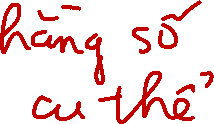 hằng số
cụ thể